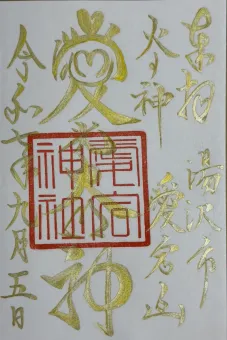 湯沢市
火の神 愛宕山
愛宕神
令和年九月五日
愛宕
神社